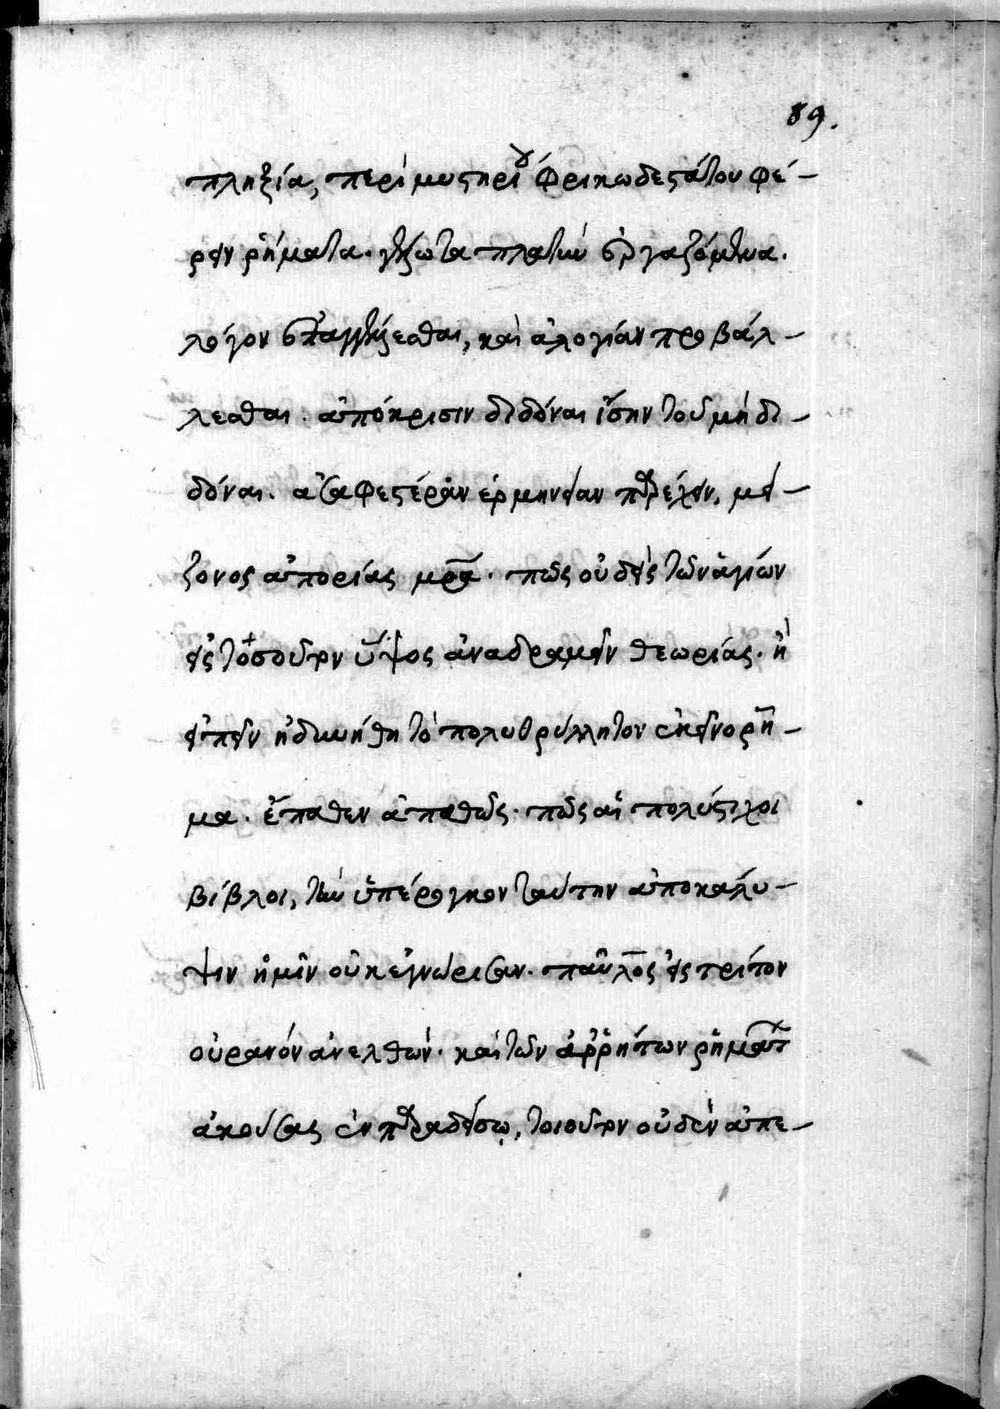 89.
πληξία, περὶ μυστηρίου φρικωδεστάτου φέ-
ρειν ῥήματα. γλῶτταν πλατὺν ἐργαζόμενα.
λόγον ἐπαγγέλλεσθαι, καὶ ἀλογίαν προβάλ-
λεσθαι. ἀπόκρισιν διδόναι ἴσην τοῦ μὴ δι-
δόναι. ἀσαφεστέραν ἑρμηνείαν παρέχειν, μεί-
ζονος ἀπορίας μεστά. πῶς οὐδεὶς τῶν ἁγίων
εἰς τοσοῦτον ὕψος ἀναδραμεῖν θεωρίας. ἢ
εἰπεῖν ἠδυνήθη τὸ πολυθρύλλητον ἐκεῖνο ῥῆ-
μα. ἔπαθεν ἀπαθῶς. πῶς αἱ πολύστιχοι
βίβλοι, τὴν ὑπέρογκον ταύτην ἀποκάλυ-
ψιν ἡμῖν οὐκ ἐγνώρισαν. παῦλος εἰς τρίτον
οὐρανόν ἀνελθών. καὶ τῶν ἀῤῥήτων ῥημάτων
ἀκούσας ἐν παραδείσῳ, τοιοῦτον οὐδὲν ἀπε-